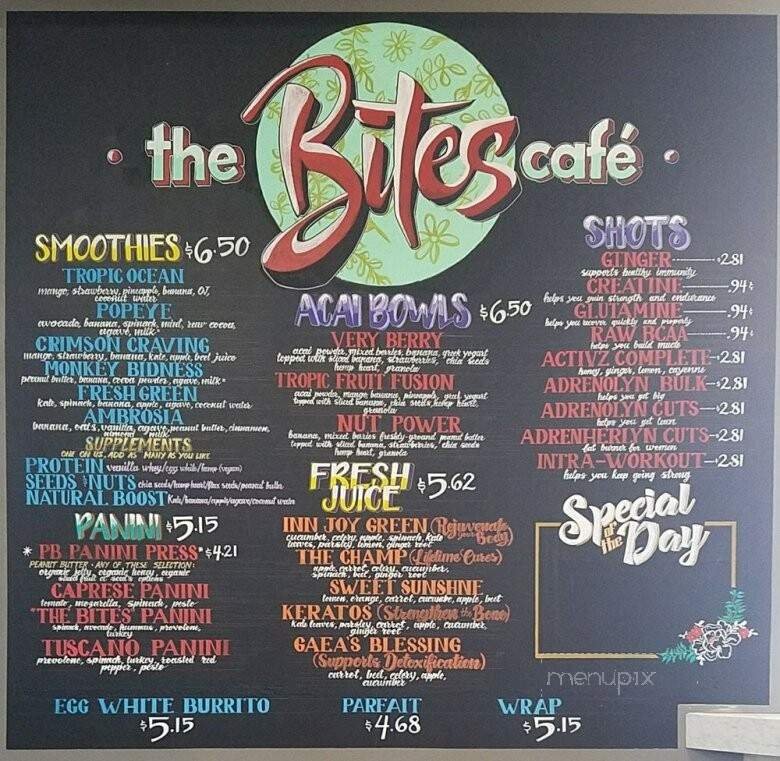 the Bites café
SMOOTHIES $6.50
TROPIC OCEAN
mango, strawberry, pineapple, banana, OJ,
coconut water
POPEYE
avocado, banana, spinach, mint, raw cocoa,
agave, milk*
CRIMSON CRAVING
mango, strawberry, banana, kale, apple, beet juice
MONKEY BIDNESS
peanut butter, banana, cocoa powder, agave, milk*
FRESH GREEN
kale, spinach, banana, apple, agave, coconut water
AMBROSIA
banana, oats, vanilla, agave, peanut butter, cinnamon,
almond milk
SUPPLEMENTS
ONE ON US, ADD AS MANY AS YOU LIKE
PROTEIN vanilla whey/egg white/hemp (vegan)
SEEDS & NUTS chia seeds/hemp heart/flax seeds/peanut butter
NATURAL BOOST kale/banana/apple/agave/coconut water
PANINI $5.15
* PB PANINI PRESS* $4.21
PEANUT BUTTER + ANY OF THESE SELECTION:
organic jelly, organic honey, organic
sliced fruit options
CAPRESE PANINI
tomato, mozarella, spinach, pesto
"THE BITES" PANINI
spinach, avocado, hummus, provolone,
turkey
TUSCANO PANINI
provolone, spinach, turkey, roasted red
pepper, pesto
ACAI BOWLS $6.50
VERY BERRY
acai powder, mixed berries, banana, greek yogurt
topped with sliced banana, strawberries, chia seeds
hemp heart, granola
TROPIC FRUIT FUSION
acai powder, mango banana, pineapple, greek yogurt
topped with sliced banana, chia seeds, hemp heart,
granola
NUT POWER
banana, mixed berries freshly-ground peanut butter
topped with sliced banana, strawberries, chia seeds
hemp heart, granola
FRESH
JUICE $5.62
INN JOY GREEN (Rejuvenate your Body)
cucumber, celery, apple, spinach, kale
leaves, parsley, lemon, ginger root
THE CHAMP (Lifetime Cures)
apple, carrot, celery, cucumber,
spinach, beet, ginger root
SWEET SUNSHNE
lemon, orange, carrot, cucumber, apple, beet
KERATOS (Strengthens the Bone)
kale leaves, parsley, carrot, apple, cucumber,
ginger root
GAEA'S BLESSING
(Supports Detoxification)
carrot, beet, celery, apple,
cucumber
SHOTS
GINGER $2.81
supports healthy immunity
CREATINE .94¢
helps you gain strength and endurance
GLUTAMINE .94¢
helps you recover quickly and properly
BCAA .94¢
helps you build muscle
ACTIVZ COMPLETE $2.81
honey, ginger, lemon, cayenne
ADRENOLYN BULK $2.81
helps you get big
ADRENOLYN CUTS $2.81
helps you get lean
ADRENHERIYN CUTS $2.81
fat burner for women
INTRA-WORKOUT $2.81
helps you keep going strong
Special
of the
Day
menupix
EGG WHITE BURRITO
$5.15
PARFAIT
$4.68
WRAP
$5.15